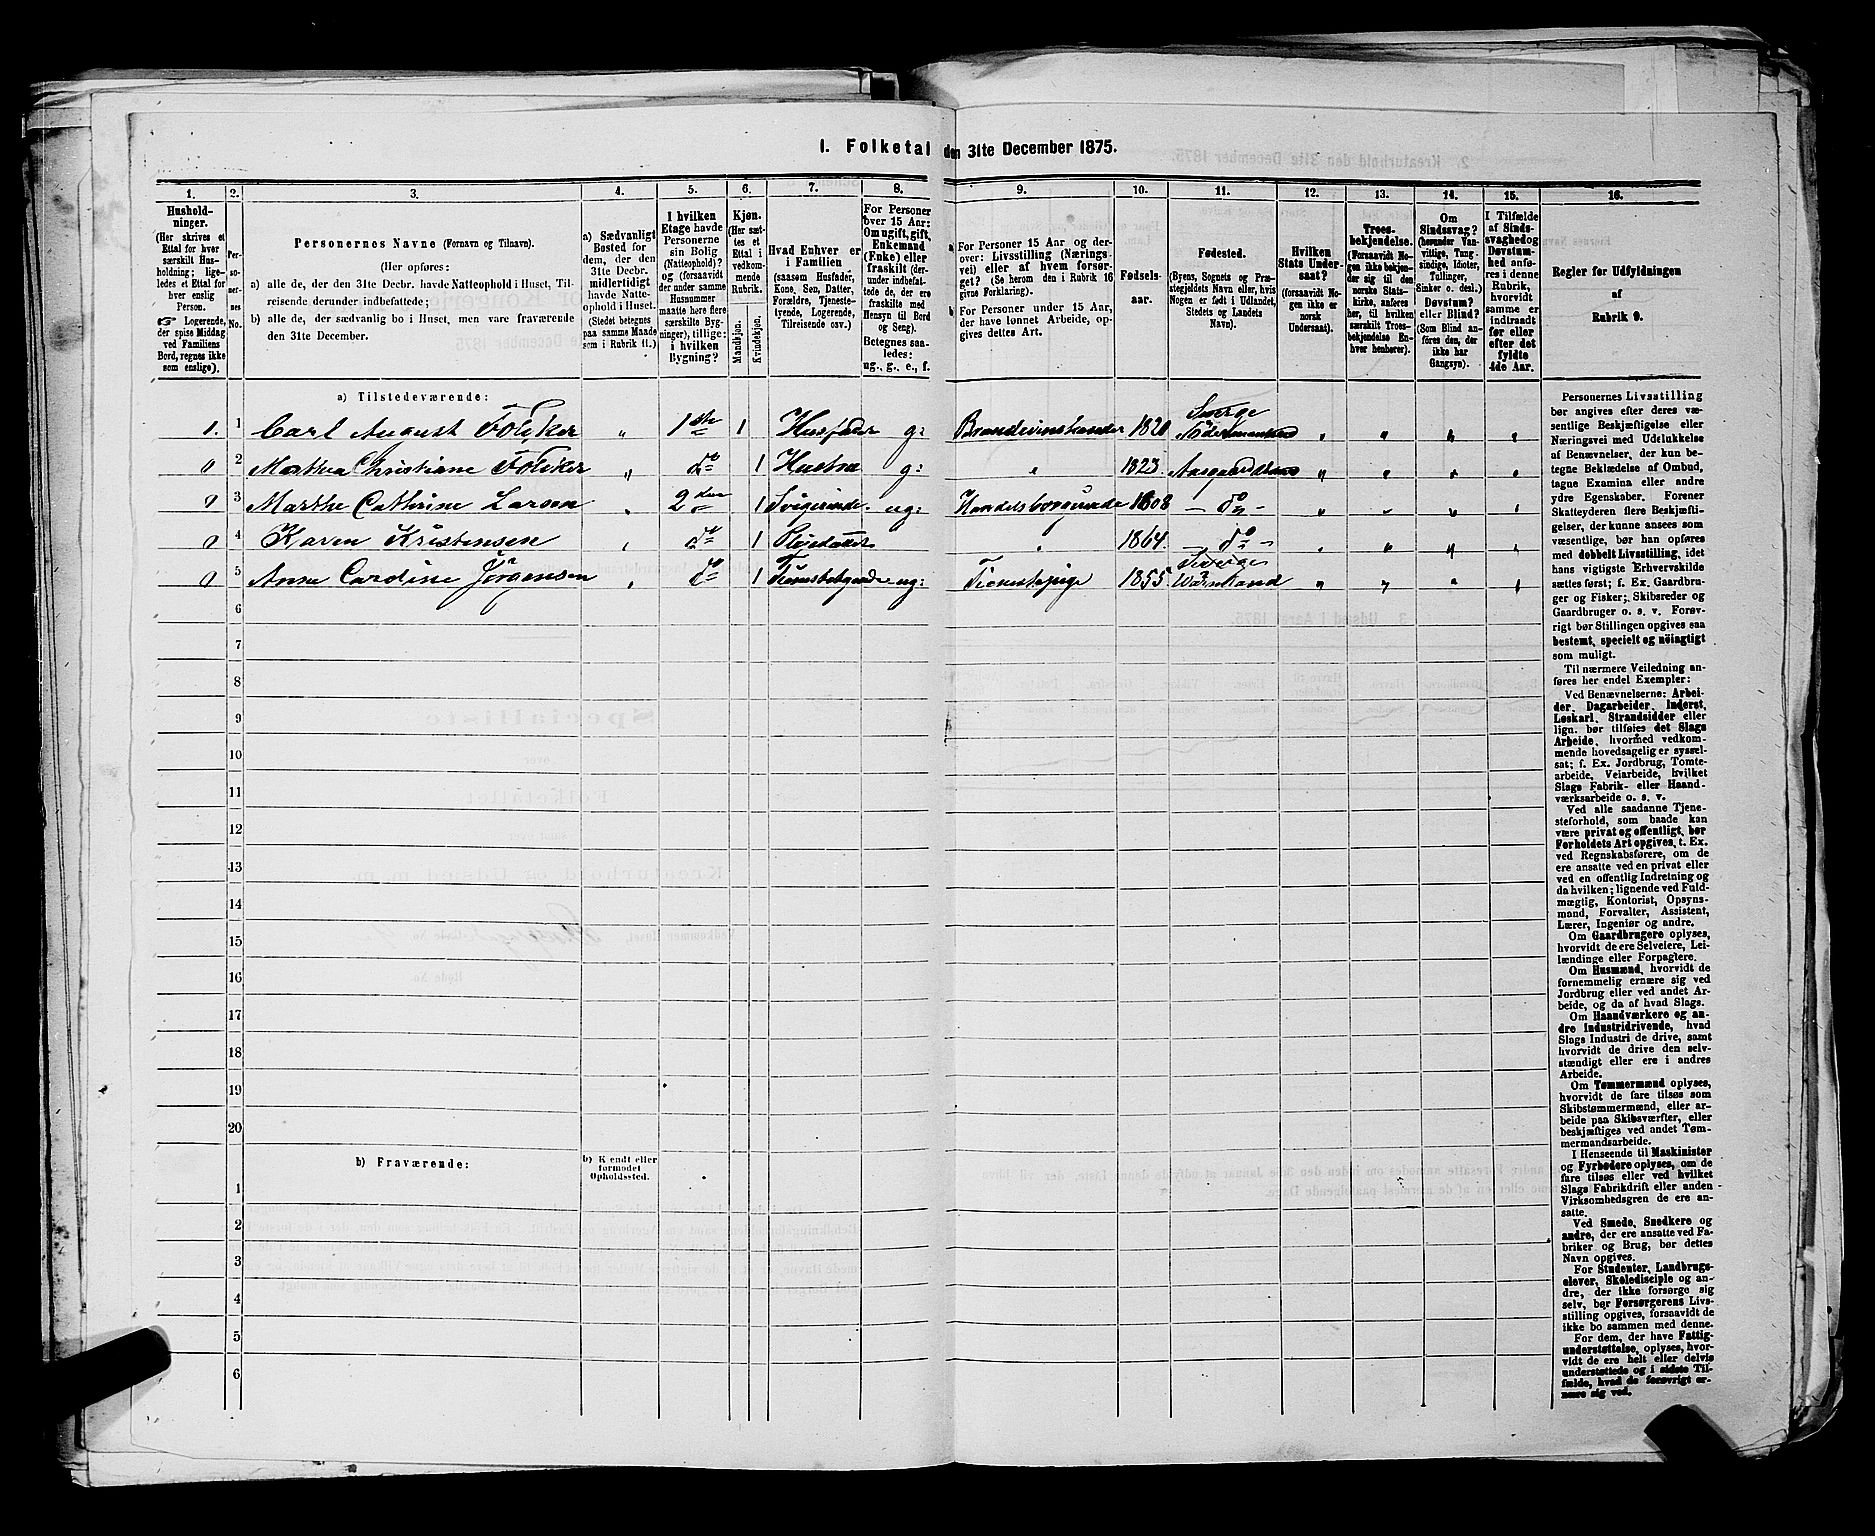 1. Folketal den 31te December 1875.
1. 2. 3. 4. 5. 6. 7. 8. 9. 10. 11. 12. 13. 14. 15. 16.
Hushold-
ninger.
(Her skrives et
Ettal for hver
særskilt Hus-
holdning; lige-
ledes et Ettal
for hver
enslig
Person.
☞ Logerende,
der spise Middag
ved Familiens
Bord, regnes ikke
som enslige).
Per-
so-
ner-
nes
No.
Personernes Navne (Fornavn og Tilnavn).
(Her opføres:
a) alle de, der den 31te Decbr. havde Natteophold i Huset, Til-
reisende derunder indbefattede;
b) alle de, der sædvanlig bo i Huset, men vare fraværende
den 31te December.
a) Sædvanligt
Bosted for
dem, der den
31te Decbr.
midlertidigt
havde Natte-
ophold i Huset.
(Stedet betegnes
paa samme Maade
som i Rubrik 11.)
I hvilken
Etage havde
Personerne
sin Bolig
(Natteophold)?
og (forsaavidt
der under samme
Husnummer
maatte høre flere
særskilte Byg-
ninger), tillige:
i hvilken
Bygning?
Kjøn.
(Her sæt-
tes et
Ettal i
vedkom-
mende
Rubrik.
Mandkjøn.
Kvindekjøn.
Hvad Enhver er
i Familien
(saasom Husfader,
Kone, Søn, Datter,
Forældre, Tjeneste-
tyende, Logerende,
Tilreisende osv.)
For Personer
over 15 Aar:
Om ugift, gift,
Enkemand
(Enke) eller
fraskilt (der-
under indbefat-
tede de, der ere
fraskilte med
Hensyn til Bord
og Seng).
Betegnes saa-
ledes:
ug., g., e., f.
a For Personer 15 Aar og der-
over: Livsstilling (Nærings-
vei) eller af hvem forsør-
get? (Se herom den i Rubrik 16
givne Forklaring).
b For Personer under 15 Aar,
der have lønnet Arbeide, op-
gives dettes Art.
Fødsels-
aar.
Fødested.
(Byens, Sognets og Præ-
stegjeldets Navn eller, hvis
Nogen er født i Udlandet,
Stedets og Landets
Navn).
Hvilken
Stats Under-
saat?
(forsaavidt No-
gen ikke er
norsk
Undersaat).
Troes-
bekjendelse.
(Forsaavidt No-
gen ikke bekjen-
der sig til den
norske Stats-
kirke, anføres
her, til hvilken
særskilt Troes-
bekjendelse En-
hver henhører).
Om
Sindssvag?
(herunder Van-
vittige, Tung-
sindige, Idioter,
Tullinger,
Sinker o. desl.)
Døvstum?
eller Blind?
(Som Blind an-
føres den, der
ikke har
Gangsyn).
I Tilfælde
af Sinds-
svaghed og
Døvstum-
hed anfø-
res i denne
Rubrik,
hvorvidt
samme er
indtraadt
før eller
efter det
fyldte
4de Aar.
Regler for Udfyldningen
af
Rubrik 9.
a) Tilstedeværende:
1. 1 Carl August „ 1ste 1 Husfader g: 1820 Sverge „ „ „ „
0 2 Marthea Christiane „ do 1 Hustru g: „ 1823 „ „ „ „
0 3 Marthe Cathrine Larsen „ 2den 1 Svigerinde ug: Handelsborgerinde 1808 – do – „ „ „ „
0 4 Karen Kristensen „ do 1 Pleiedatter „ 1864. – do – „ „ „ „
0 5 Anne Cardine Jørgensen „ do 1 ug: Tienestepige 1855 Sverge Warmland „ „ „ „
6
7
8
9
10
11
12
13
14
15
16
17
18
19
20
b) Fraværende: b) Kjendt eller
formodet
Opholdssted.
1
2
3
4
5
6
Personernes Livsstilling
bør angives efter deres væ-
sentlige Beskjæftigelse eller
Næringsvei med Udelukkelse
af Benævnelser, der kun be-
tegne Beklædelse af Ombud,
tagne Examina eller andre
ydre Egenskaber. Forener
Skatteyderen flere Beskjæfti-
gelser, der kunne ansees som
væsentlige, bør han opføres
med dobbelt Livsstilling, idet
hans vigtigste Erhvervskilde
sættes først; f. Ex. Gaardbru-
ger og Fisker; Skibsreder og
Gaardbruger o. s. v. Forøv-
rigt bør Stillingen opgives saa
bestemt, specielt og nöiagtigt
som muligt.
Til nærmere Veiledning an-
føres her endel Exempler:
Ved Benævnelserne: Arbei-
der, Dagarbeider, Inderst,
Løskarl, Strandsidder eller
lign. bør tilføies det Slags
Arbeide, hvormed vedkom-
mende hovedsagelig er syssel-
sat; f. Ex. Jordbrug, Tomte-
arbeide, Veiarbeide, hvilket
Slags Fabrik- eller Haand-
værksarbeide o. s. v.
Ved alle saadanne Tjene-
steforhold, som baade kan
være privat og offentligt, bør
Forholdets Art opgives, t. Ex.
ved Regnskabsførere, om de
ere ansatte ved en privat eller
ved en offentlig Indretning og
da hvilken; lignende ved Fuld-
mægtig, Kontorist, Opsyns-
mand, Forvalter, Assistent,
Lærer, Ingeniør og andre.
Om Gaardbrugere oplyses,
hvorvidt de ere Selveiere, Lei-
lændinge eller Forpagtere.
Om Husmænd, hvorvidt de
fornemmelig ernære sig ved
Jordbrug eller ved andet Ar-
beide, og da af hvad Slags.
Om Haandværkere og an-
dre Industridrivende, hvad
Slags Industri de drive, samt
hvorvidt de drive den selv-
stændigt eller ere i andres
Arbeide.
Om Tømmermænd oplyses,
hvorvidt de fare tilsøs som
Skibstømmermænd, eller ar-
beide paa Skibsværfter, eller
beskjæftiges ved andet Tøm-
mermandsarbeide.
I Henseende til Maskinister
og Fyrbødere oplyses, om de
fare tilsøs eller ved hvilket
Slags Fabrikdrift eller anden
Virksomhedsgren de ere an-
satte.
Ved Smede, Snedkere og
andre, der ere ansatte ved Fa-
briker og Brug, bør dettes
Navn opgives.
For Studenter, Landbrugs-
elever, Skoledisciple og an-
dre, der ikke forsørge sig
selv, bør Forsørgerens Livs-
stilling opgives, forsaavidt de
ikke bo sammen med denne.
For dem, der have Fattig-
understøttelse, oplyses, hvor-
vidt de ere helt eller delvis
understøttede og i sidste Til-
fælde, hvad de forøvrigt er-
nære sig ved.